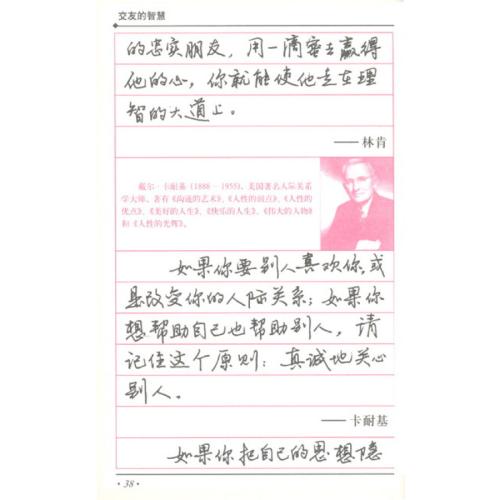 交友的智慧
的忠实朋友，用一滴蜜去赢得
他的心，你就能使他走在理
智的大道上。
——林肯
戴尔·卡耐基(1888－1955)，美国著名人际关系
学大师。著有《沟通的艺术》、《人性的弱点》、《人性的
优点》、《美好的人生》、《快乐的人生》、《伟大的人物》
和《人性的光辉》。
如果你要别人喜欢你，或
是改变你的人际关系；如果你
想帮助自己也帮助别人，请
记住这个原则：真诚地关心
别人。
——卡耐基
如果你把自己的思想隐
·38·